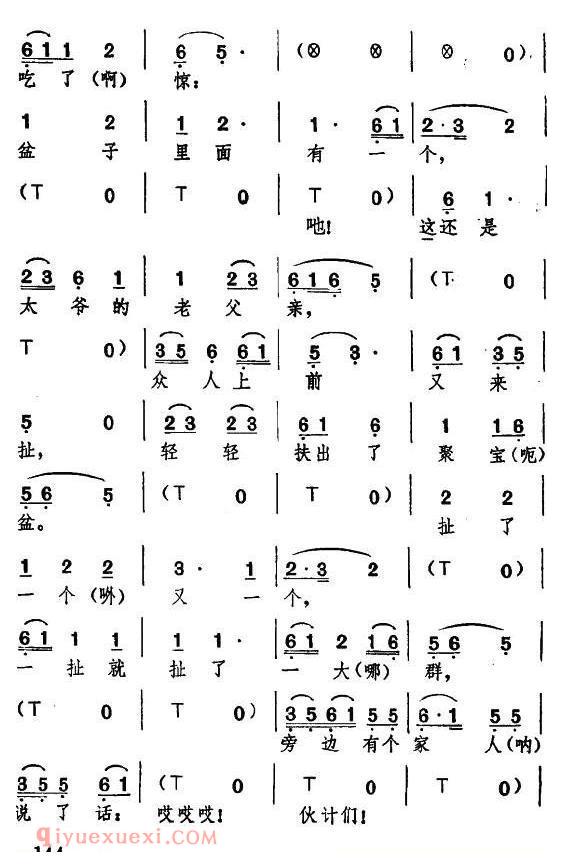 6 1 1 2 | 6 5 · | (⊗ ⊗ | ⊗ 0) |
吃了(啊) 惊:
1 2 | 1 2 · | 1 · 6 1 | 2 · 3 2 |
盆子里面有一个,
(T 0 | T 0 | T 0) | 6 1 · |
吔! 这还是
2 3 6 1 | 1 2 3 | 6 1 6 5 | (T 0 |
太爷的老父亲,
T 0) | 3 5 6 6 1 | 5 3 · | 6 1 3 5 |
众人上前又来
5 0 | 2 3 2 3 | 6 1 6 | 1 1 6 |
扯, 轻轻扶出了聚宝(呃)
5 6 5 | (T 0 | T 0) | 2 2 |
盆。 扯了
1 2 2 | 3 · 1 | 2 · 3 2 | (T 0) |
一个(哵) 又一个,
6 1 1 1 | 1 1 · | 6 1 2 1 6 | 5 6 5 |
一扯就扯了一大(哪)群,
(T 0 | T 0) | 3 5 6 1 5 5 | 6 · 1 5 5 |
旁边有个家人(呐)
3 5 5 6 1 | (T 0 | T 0 | T 0) |
说了话: 哎哎哎! 伙计们!
qiyuexuexi.com
144